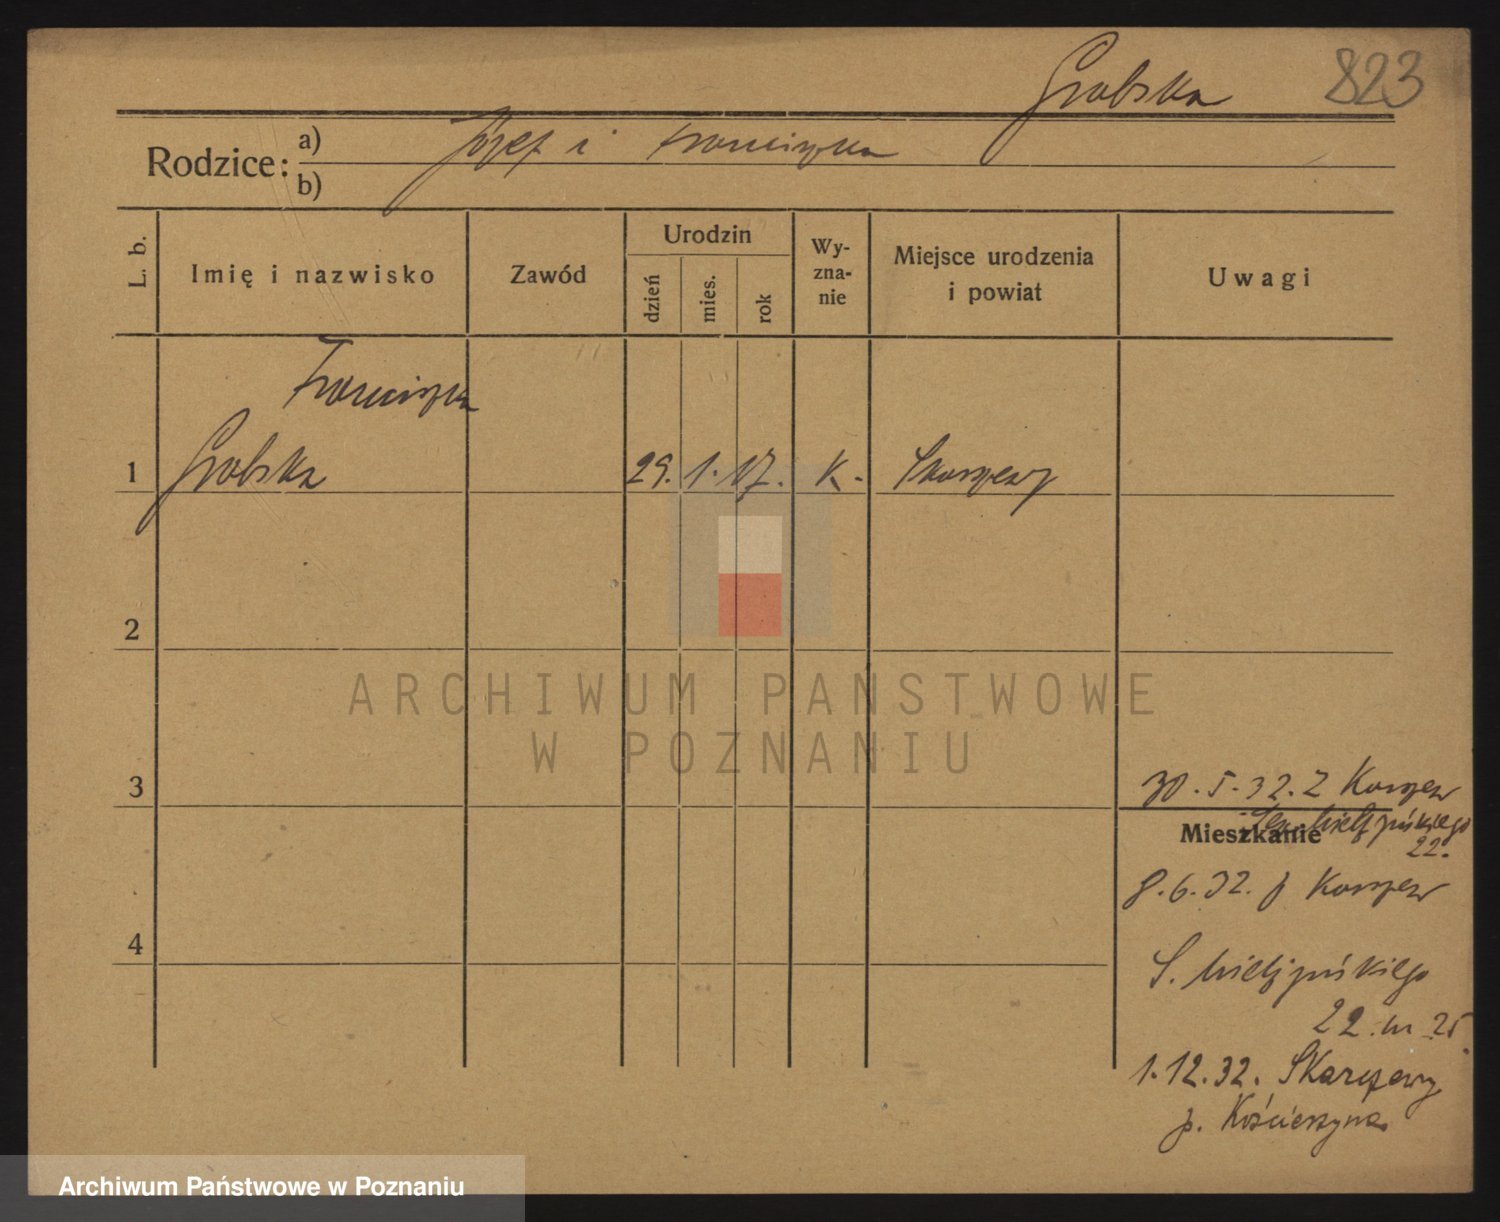 Grabska 823
Rodzice: a) Józef i Franciszka
b)
L. b. Imię i nazwisko Zawód Urodzin dzień mies. rok Wy-zna-nie Miejsce urodzenia i powiat Uwagi
Franciszka
1 Grabska 29. 1. 17. K. Skorzewy
2
ARCHIWUM PAŃSTWOWE
W POZNANIU
3
30.5.32. Z Korzew
Mielżyńskiego
22.
Mieszkanie
8.6.32. Korzew
4
S. Mielżyńskiego
22 m 25
1.12.32. Skarzewy
p. Kościerzyna
Archiwum Państwowe w Poznaniu